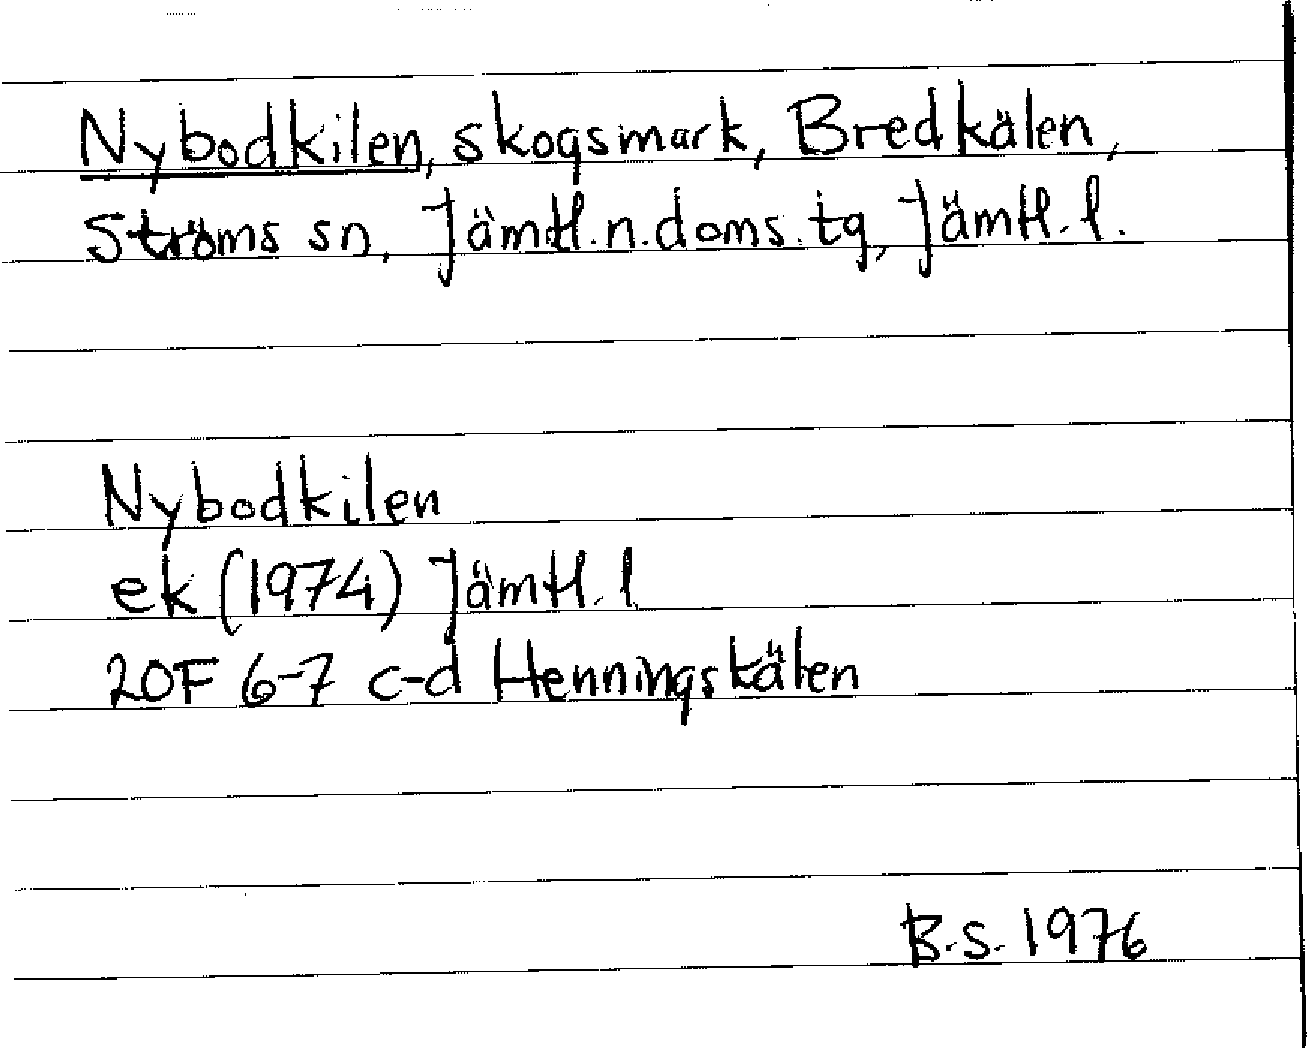 Nybodkilen, skogsmark, Bredkälen,
Ströms sn, Jämtl.n.doms.tg, Jämtl.l.
Nybodkilen
ek (1974) Jämtl.l
20F 6-7 c-d Henningskälen
B.S. 1976